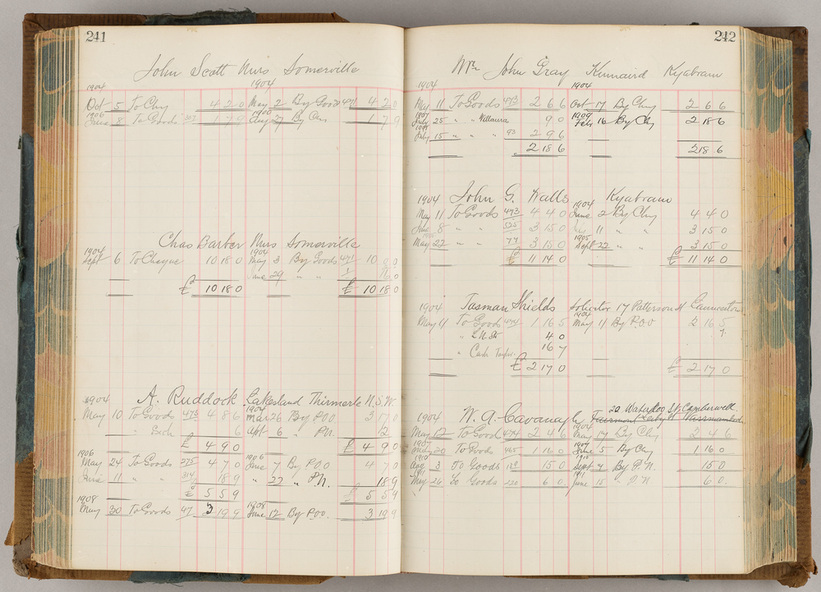 241
John Scott Nurs Somerville
1904 1904
Oct 5 To Chq 4 2 0 May 2 By Goods 4 2 0
1906
June 8 To Goods 1 7 9 Aug 27 By Cash 1 7 9
Chas Barber Nurs Somerville
1904
Sept 6 To Cheque 10 18 0 May 3 By Goods 10
June 29 " "
£ 10 18 0 £ 10 18 0
A. Ruddock Lakesland Thirmerle N.S.W.
1904 1904
May 10 To Goods 4 8 6 Mar 26 By P.O.O 3 17 0
" 6 Apl 6 " P.N. 12
£ 4 9 0 £ 4 9 0
1906 1906
May 24 To Goods 4 7 0 June 7 By P.O.O 4 7 0
June 11 " " 18 9 " 22 " P.N. 18 9
£ 5 5 9 £ 5 5 9
1908 1908
May 20 To Goods 47 3 19 9 June 12 By P.O.O 3 19 9
242
Mr John Gray Kinnaird Kyabram
1904 1904
May 11 To Goods 473 2 6 6 Oct 17 By Chq 2 6 6
July 25 " " 9 0 Feb 16 By Chq 2 18 6
July 15 " " 2 9 6
2 18 6 2 18 6
John G. Watts Kyabram
1904 1904
May 11 To Goods 473 4 4 0 June 2 By Chq 4 4 0
June 8 " " 3 15 0 11 " " 3 15 0
May 22 " " 77 3 15 0 Sept 22 " " 3 15 0
£ 11 14 0 £ 11 14 0
Tasman Shields Solicitor 17 Patterson St Launceston
1904 1904
May 11 To Goods 474 1 16 5 May 11 By P.O.O 2 16 5
" 4 0 7
" Case 16 7
£ 2 17 0 £ 2 17 0
20 Waterloo St Camberwell
W. A. Cavanagh
1904 1904
May 12 To Goods 474 2 4 6 May 17 By Chq 2 4 6
20 To Goods 1 16 0 June 5 By Chq 1 16 0
Aug 3 To Goods 15 0 Sept 4 By P.N. 15 0
May 24 To Goods 6 0 June 15 " P.N. 6 0